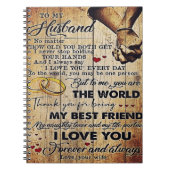 TO MY
Husband
No matter
HOW OLD YOU BOTH GET
I never stop holding
YOUR HANDS
And I always say
I LOVE YOU EVERY DAY
To the world, you may be one person
But to me you are
THE WORLD
Thank you for being
MY BEST FRIEND
My naughty lover and my life partner
I LOVE YOU
Forever and always
Love, your wife!